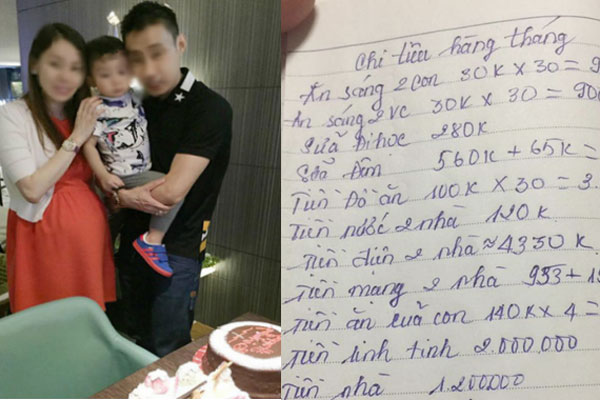 Chi tiêu hàng tháng
Ăn sáng 2 con 30K x 30 = 9
Ăn sáng 2 vc 30K x 30 = 90
Sữa Đi học 280K
Sữa Đêm 560K + 65K =
Tiền Đồ ăn 100K x 30 = 3.
Tiền nước 2 nhà 120K
Tiền điện 2 nhà ≈ 4350K
Tiền mạng 2 nhà 933 + 1
Tiền ăn của con 140K x 4 =
Tiền linh tinh 2.000.000
Tiền nhà 1.200.000